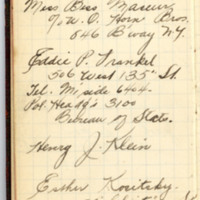 Miss Bess Marcus
c/o W. O. Horn Bros.
846 B'way N.Y.
Eddie P. Frankel
506 West 135" St.
Tel. M'side 6404.
Pol. Headq's 3100
Bureau of Stats.
Henry J. Klein
Esther Kositsky.